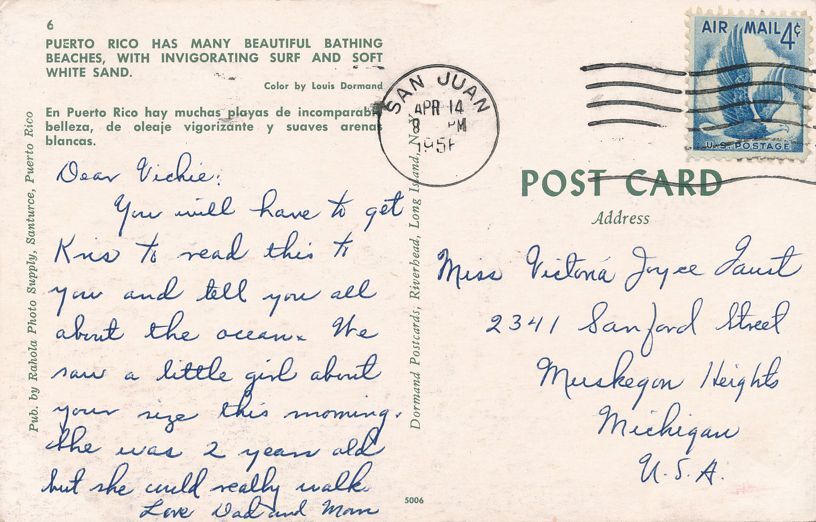 6
PUERTO RICO HAS MANY BEAUTIFUL BATHING
BEACHES, WITH INVIGORATING SURF AND SOFT
WHITE SAND.
Color by Louis Dormand
En Puerto Rico hay muchas playas de incomparable
belleza, de oleaje vigorizante y suaves arenas
blancas.
Pub. by Rahola Photo Supply, Santurce, Puerto Rico
Dear Vickie:
You will have to get
Kris to read this to
you and tell you all
about the ocean. We
saw a little girl about
your size this morning.
She was 2 years old
but she could really walk
Love Dad and Mom
Dormand Postcards, Riverhead, Long Island, N.Y.
5006
SAN JUAN
APR 14
PM
AIR MAIL 4¢
U.S. POSTAGE
POST CARD
Address
Miss Victoria Joyce Faust
2341 Sanford Street
Muskegon Heights
Michigan
U.S.A.